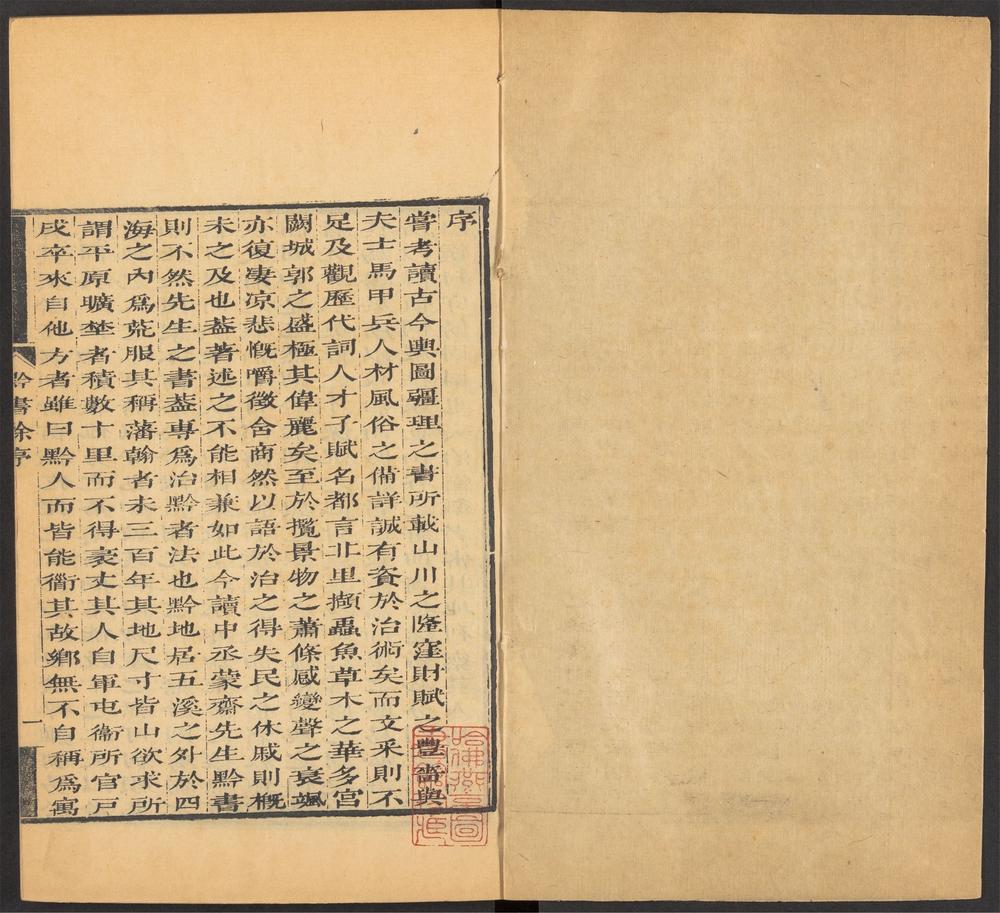 序
嘗考讀古今輿圖疆理之書所載山川之隆窪財賦之豐嗇與
夫士馬甲兵人材風俗之備詳誠有資於治術矣而文釆則不
足及觀歷代詞人才子賦名都言北里擷蟲魚草木之華多宮
闕城郭之盛極其偉麗矣至於攬景物之蕭條感變聲之衰颯
亦復凄凉悲慨嚼徵含商然以語於治之得失民之休戚則概
未之及也葢著述之不能相兼如此今讀中丞蒙齋先生黔書
則不然先生之書葢專爲治黔者法也黔地居五溪之外於四
海之內爲荒服其稱藩翰者未三百年其地尺寸皆山欲求所
謂平原曠埜者積數十里而不得袤丈其人自軍屯衞所官戸
戍卒來自他方者雖曰黔人而皆能衞其故鄉無不自稱爲寓
黔書徐序
一
哈佛燕京圖